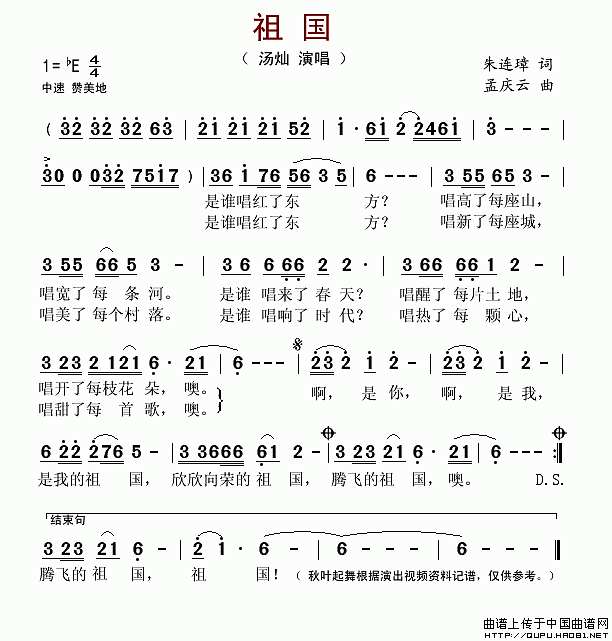 祖国
（ 汤灿 演唱 ）
1= ♭E 4/4
朱连璋 词
中速 赞美地
孟庆云 曲
( 32 32 32 63 | 21 21 21 52 | 1 · 61 2 2461 | 3 - - -
30 0 032 7517 ) | 36 1 76 56 3 5 | 6 - - - | 3 55 65 3 -
是谁唱红了东 方？ 唱高了每座山，
是谁唱红了东 方？ 唱新了每座城，
3 55 66 5 3 - | 3 6 6 66 2 2 · | 3 66 66 2 -
唱宽了 每 条 河。 是谁 唱来了 春 天？ 唱醒了 每片土 地，
唱美了 每个村 落。 是谁 唱响了 时 代？ 唱热了 每 颗 心，
3 23 2 121 6 · 21 | 6 - - - | 23 2 1 - | 23 2 1 -
唱开了每枝花 朵，噢。 啊， 是 你， 啊， 是 我，
唱甜了每 首 歌，噢。
6 22 276 5 - | 3 3666 61 2 - | 3 23 21 6 · 21 | 6 - - :|
是我的祖 国， 欣欣向荣的 祖 国， 腾飞的祖 国，噢。 D.S.
结束句
3 23 21 6 - | 2 1 · 6 - | 6 - - - | 6 - - - |
腾飞的 祖 国， 祖 国！（ 秋叶起舞根据演出视频资料记谱，仅供参考。）
曲谱上传于中国曲谱网
HTTP://QUPU.HAO81.NET